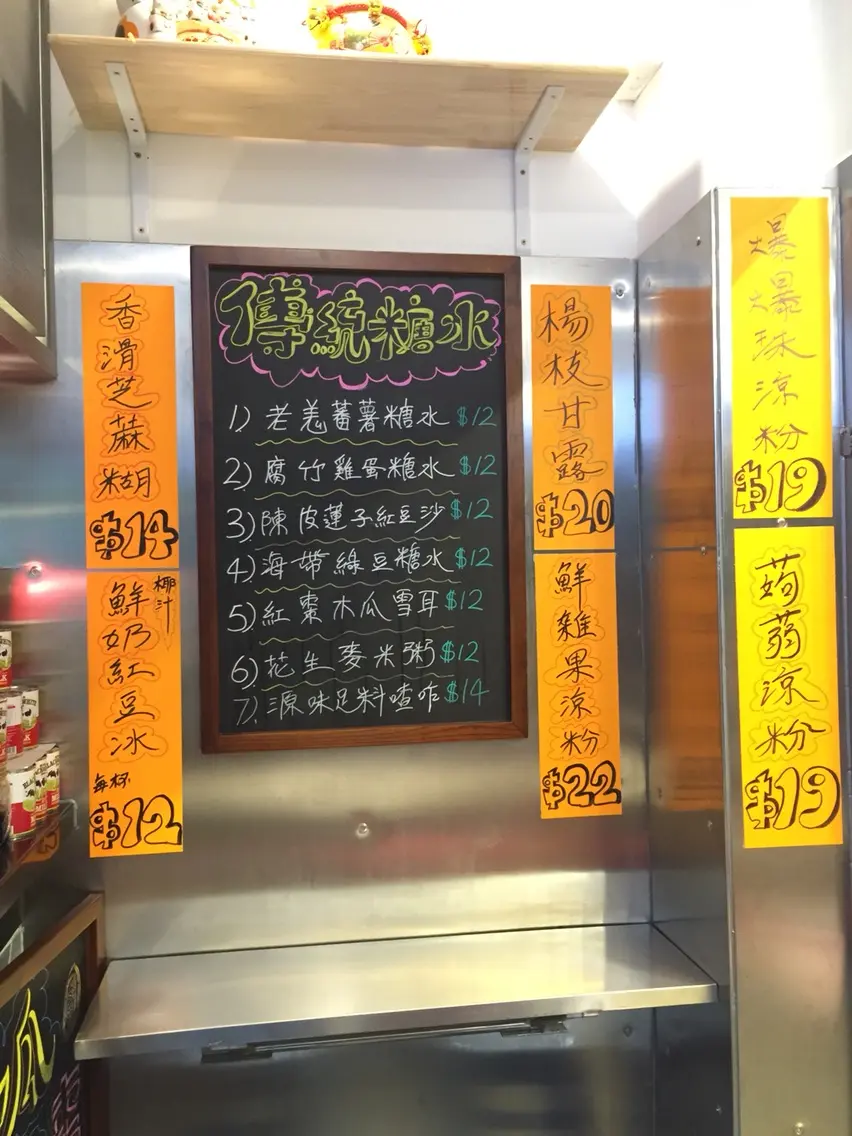 香滑芝蔴糊
$14
椰汁
鮮奶紅豆冰
每杯
$12
傳統糖水
1) 老羗蕃薯糖水 $12
2) 腐竹雞蛋糖水 $12
3) 陳皮蓮子紅豆沙 $12
4) 海帶綠豆糖水 $12
5) 紅棗木瓜雪耳 $12
6) 花生麥米粥 $12
7) 源味足料喳咋 $14
楊枝甘露
$20
鮮雜果涼粉
$22
爆爆珠涼粉
$19
蒟蒻涼粉
$19